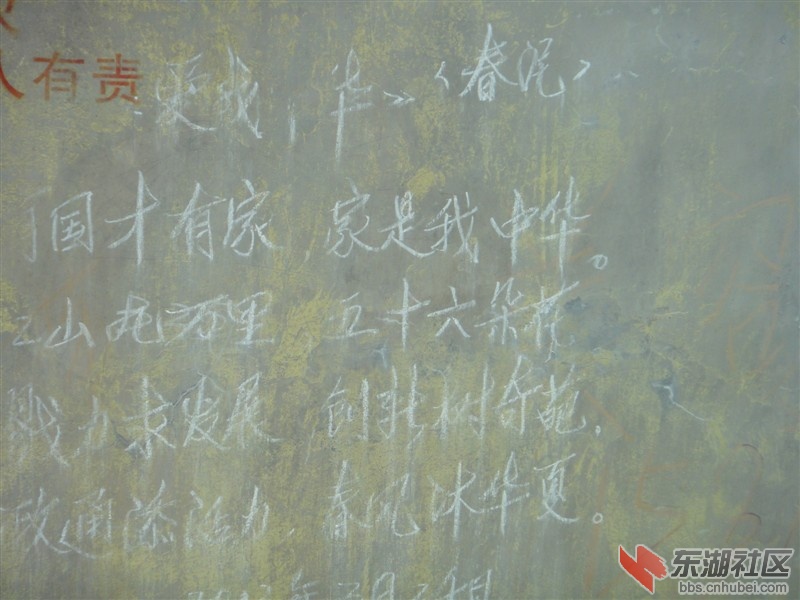 人有责
爱我中华》《春泥》
国才有家 家是我中华。
江山九万里 五十六朵花
戮力求发展 创新树奇葩.
政通添活力. 春风沐华夏。
年 月
东湖社区
bbs.cnhubei.com